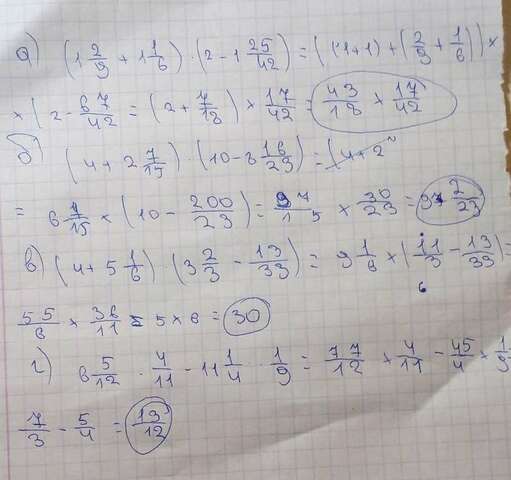 а) (1 2/9 + 1 1/6) · (2 - 1 25/42) = ((1+1) + (2/9 + 1/6)) ×
× (2 - 67/42 = (2 + 7/18) × 17/42 = 43/18 × 17/42
б) (4 + 2 7/15) · (10 - 8 16/23) = (4 + 2
= 6 7/15 × (10 - 200/23) = 97/15 × 30/23 = 97 2/23
в) (4 + 5 1/6) · (3 2/3 - 13/33) = 9 1/6 × (11/3 - 13/33) =
55/6 × 36/11 = 5 × 6 = 30
г) 6 5/12 · 4/11 - 11 1/4 · 1/9 = 77/12 × 4/11 - 45/4 × 1/9
7/3 - 5/4 = 13/12